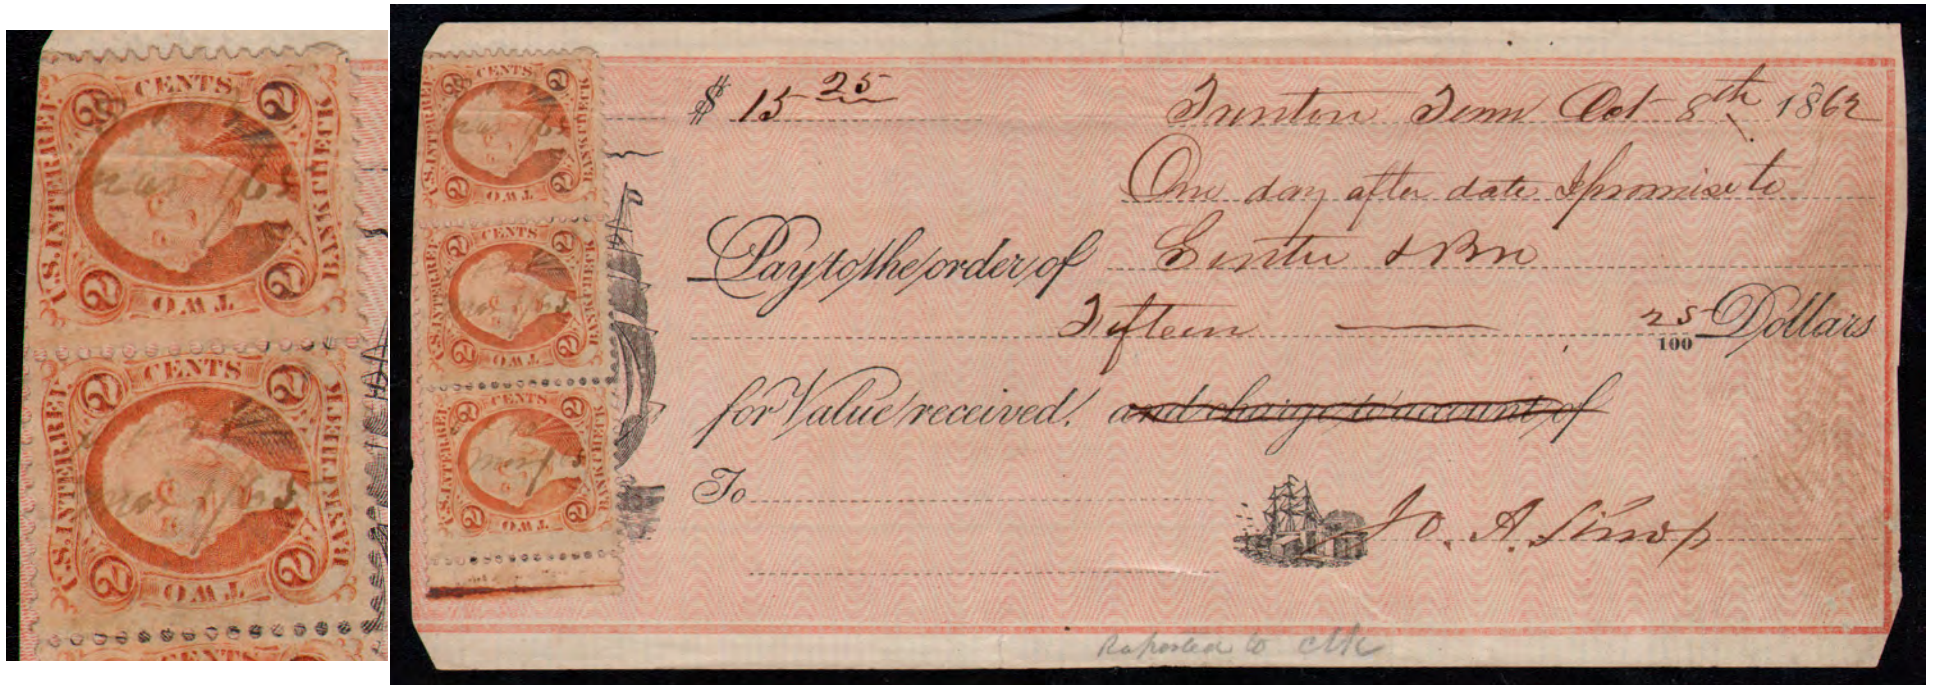 CENTS
2 2
U.S. INTER. REV.
BANK CHECK
2 2
TWO
CENTS
2 2
U.S. INTER. REV.
BANK CHECK
2 2
TWO
CENTS
CENTS
2 2
U.S. INTER. REV.
BANK CHECK
2 2
TWO
CENTS
2 2
U.S. INTER. REV.
BANK CHECK
2 2
TWO
CENTS
2 2
U.S. INTER. REV.
BANK CHECK
2 2
TWO
$ 15 25 Trenton Tenn Oct 8th 1862
One day after date I promise to
Pay to the order of & Bro
Fifteen 25/100 Dollars
for Value received, and charge to account of
To
Jo. A.
to